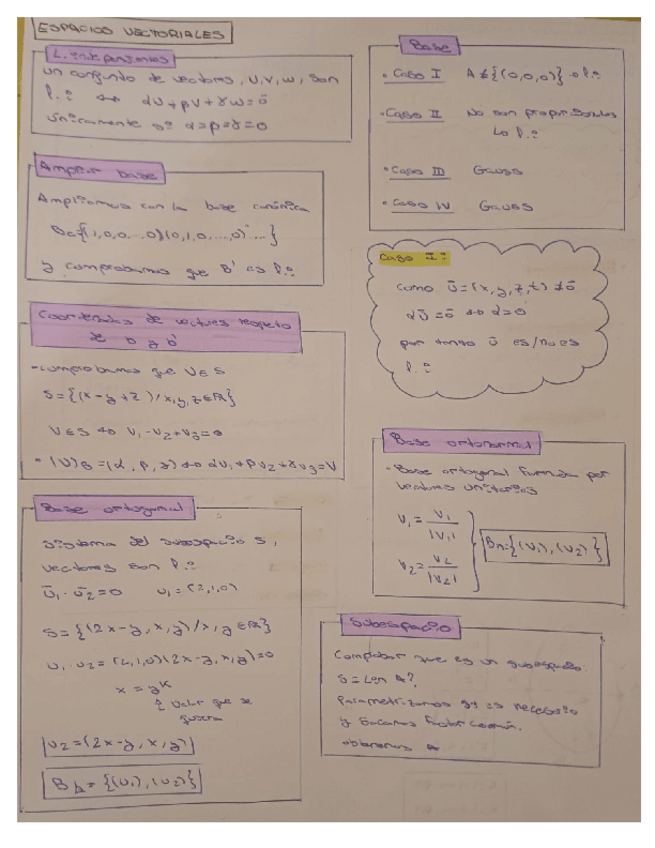 ESPACIOS VECTORIALES
L. independientes
Un conjunto de vectores, U, V, W, son
l.i ⇔ αU+βV+γW=ō
únicamente si α=β=γ=0
Ampliar base
Ampliamos con la base canónica
Bc{(1,0,0,...,0)(0,1,0,...,0)...}
y comprobamos que B' es l.i
Coordenadas de vectores respeto
de B y B'
-comprobamos que V∈S
S={(x-y+z)/x,y,z∈R}
V∈S ⇔ V₁-V₂+V₃=0
• (V)B=(α,β,γ) ⇔ αV₁+βV₂+γV₃=V
Base ortogonal
Sistema del subespacio S,
vectores son l.i
Ū₁·Ū₂=0 U₁=(2,1,0)
S={(2x-y,x,y)/x,y∈R}
U₁·U₂=(2,1,0)(2x-y,x,y)=0
x=yK
valor que se
quiera
U₂=(2x-y,x,y)
Bb={(U₁),(U₂)}
Base
• Caso I A≠{(0,0,0)}→l.i
• Caso II No son proporcionales
Lo l.i
• Caso III Gauss
• Caso IV Gauss
Caso I:
como ū=(x,y,z,t)≠ō
αū=ō ⇔ α=0
por tanto ū es/no es
l.i
Base ortonormal
- Base ortogonal formada por
vectores unitarios
V₁=V₁/|V₁|
V₂=V₂/|V₂|
Bn={(V₁),(V₂)}
Subespacio
Comprobar que es un subespacio.
S=Len A?
Parametrizamos si es necesario
y sacamos factor común.
obtenemos A